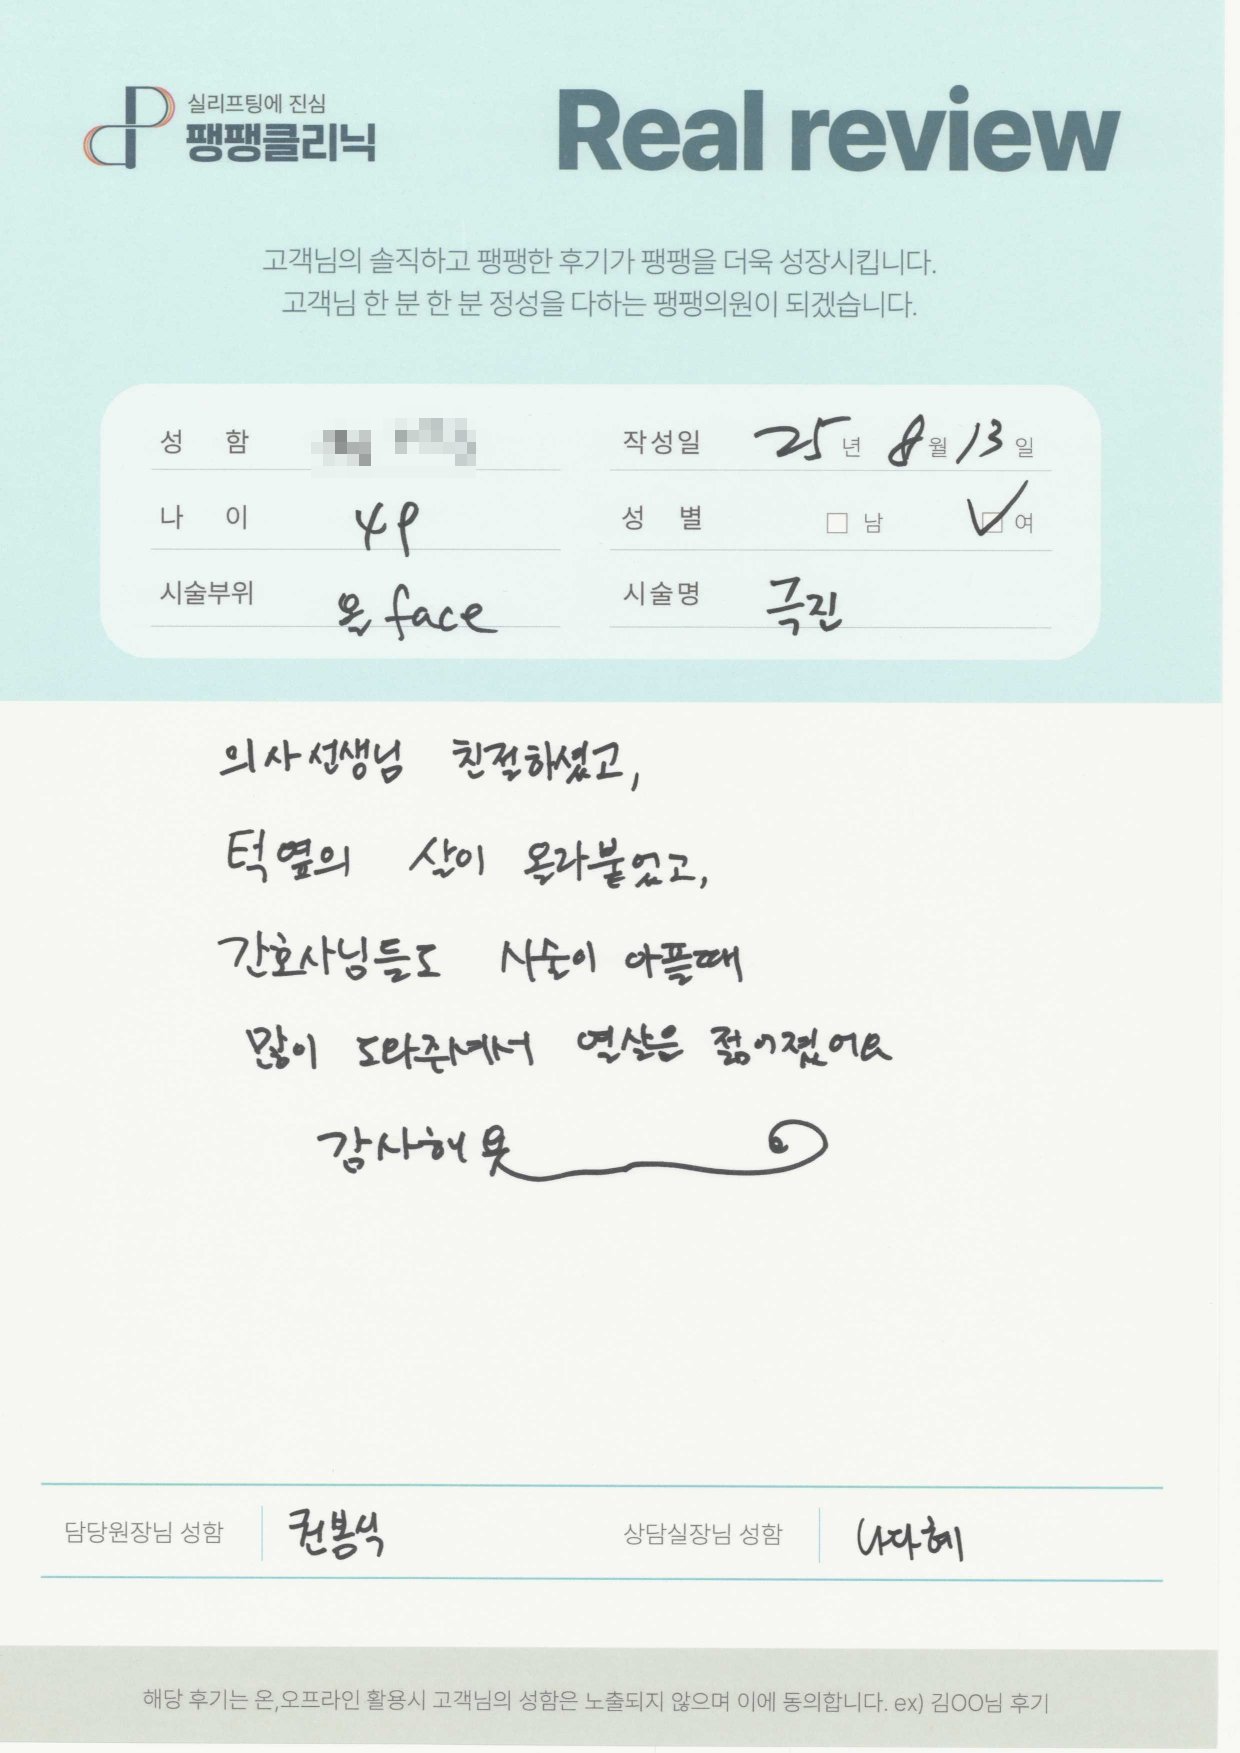 실리프팅에 진심
팽팽클리닉
Real review
고객님의 솔직하고 팽팽한 후기가 팽팽을 더욱 성장시킵니다.
고객님 한 분 한 분 정성을 다하는 팽팽의원이 되겠습니다.
성 함 작성일 25년 8월 13일
나 이 49 성 별 남 여
시술부위 온 face 시술명 극진
의사선생님 친절하셨고,
턱옆의 살이 올라붙었고,
간호사님들도 시술이 아플때
많이 도와주셔서 열살은 젊어졌어요
감사해욧
담당원장님 성함 권봉식 상담실장님 성함 나다혜
해당 후기는 온,오프라인 활용시 고객님의 성함은 노출되지 않으며 이에 동의합니다. ex) 김OO님 후기